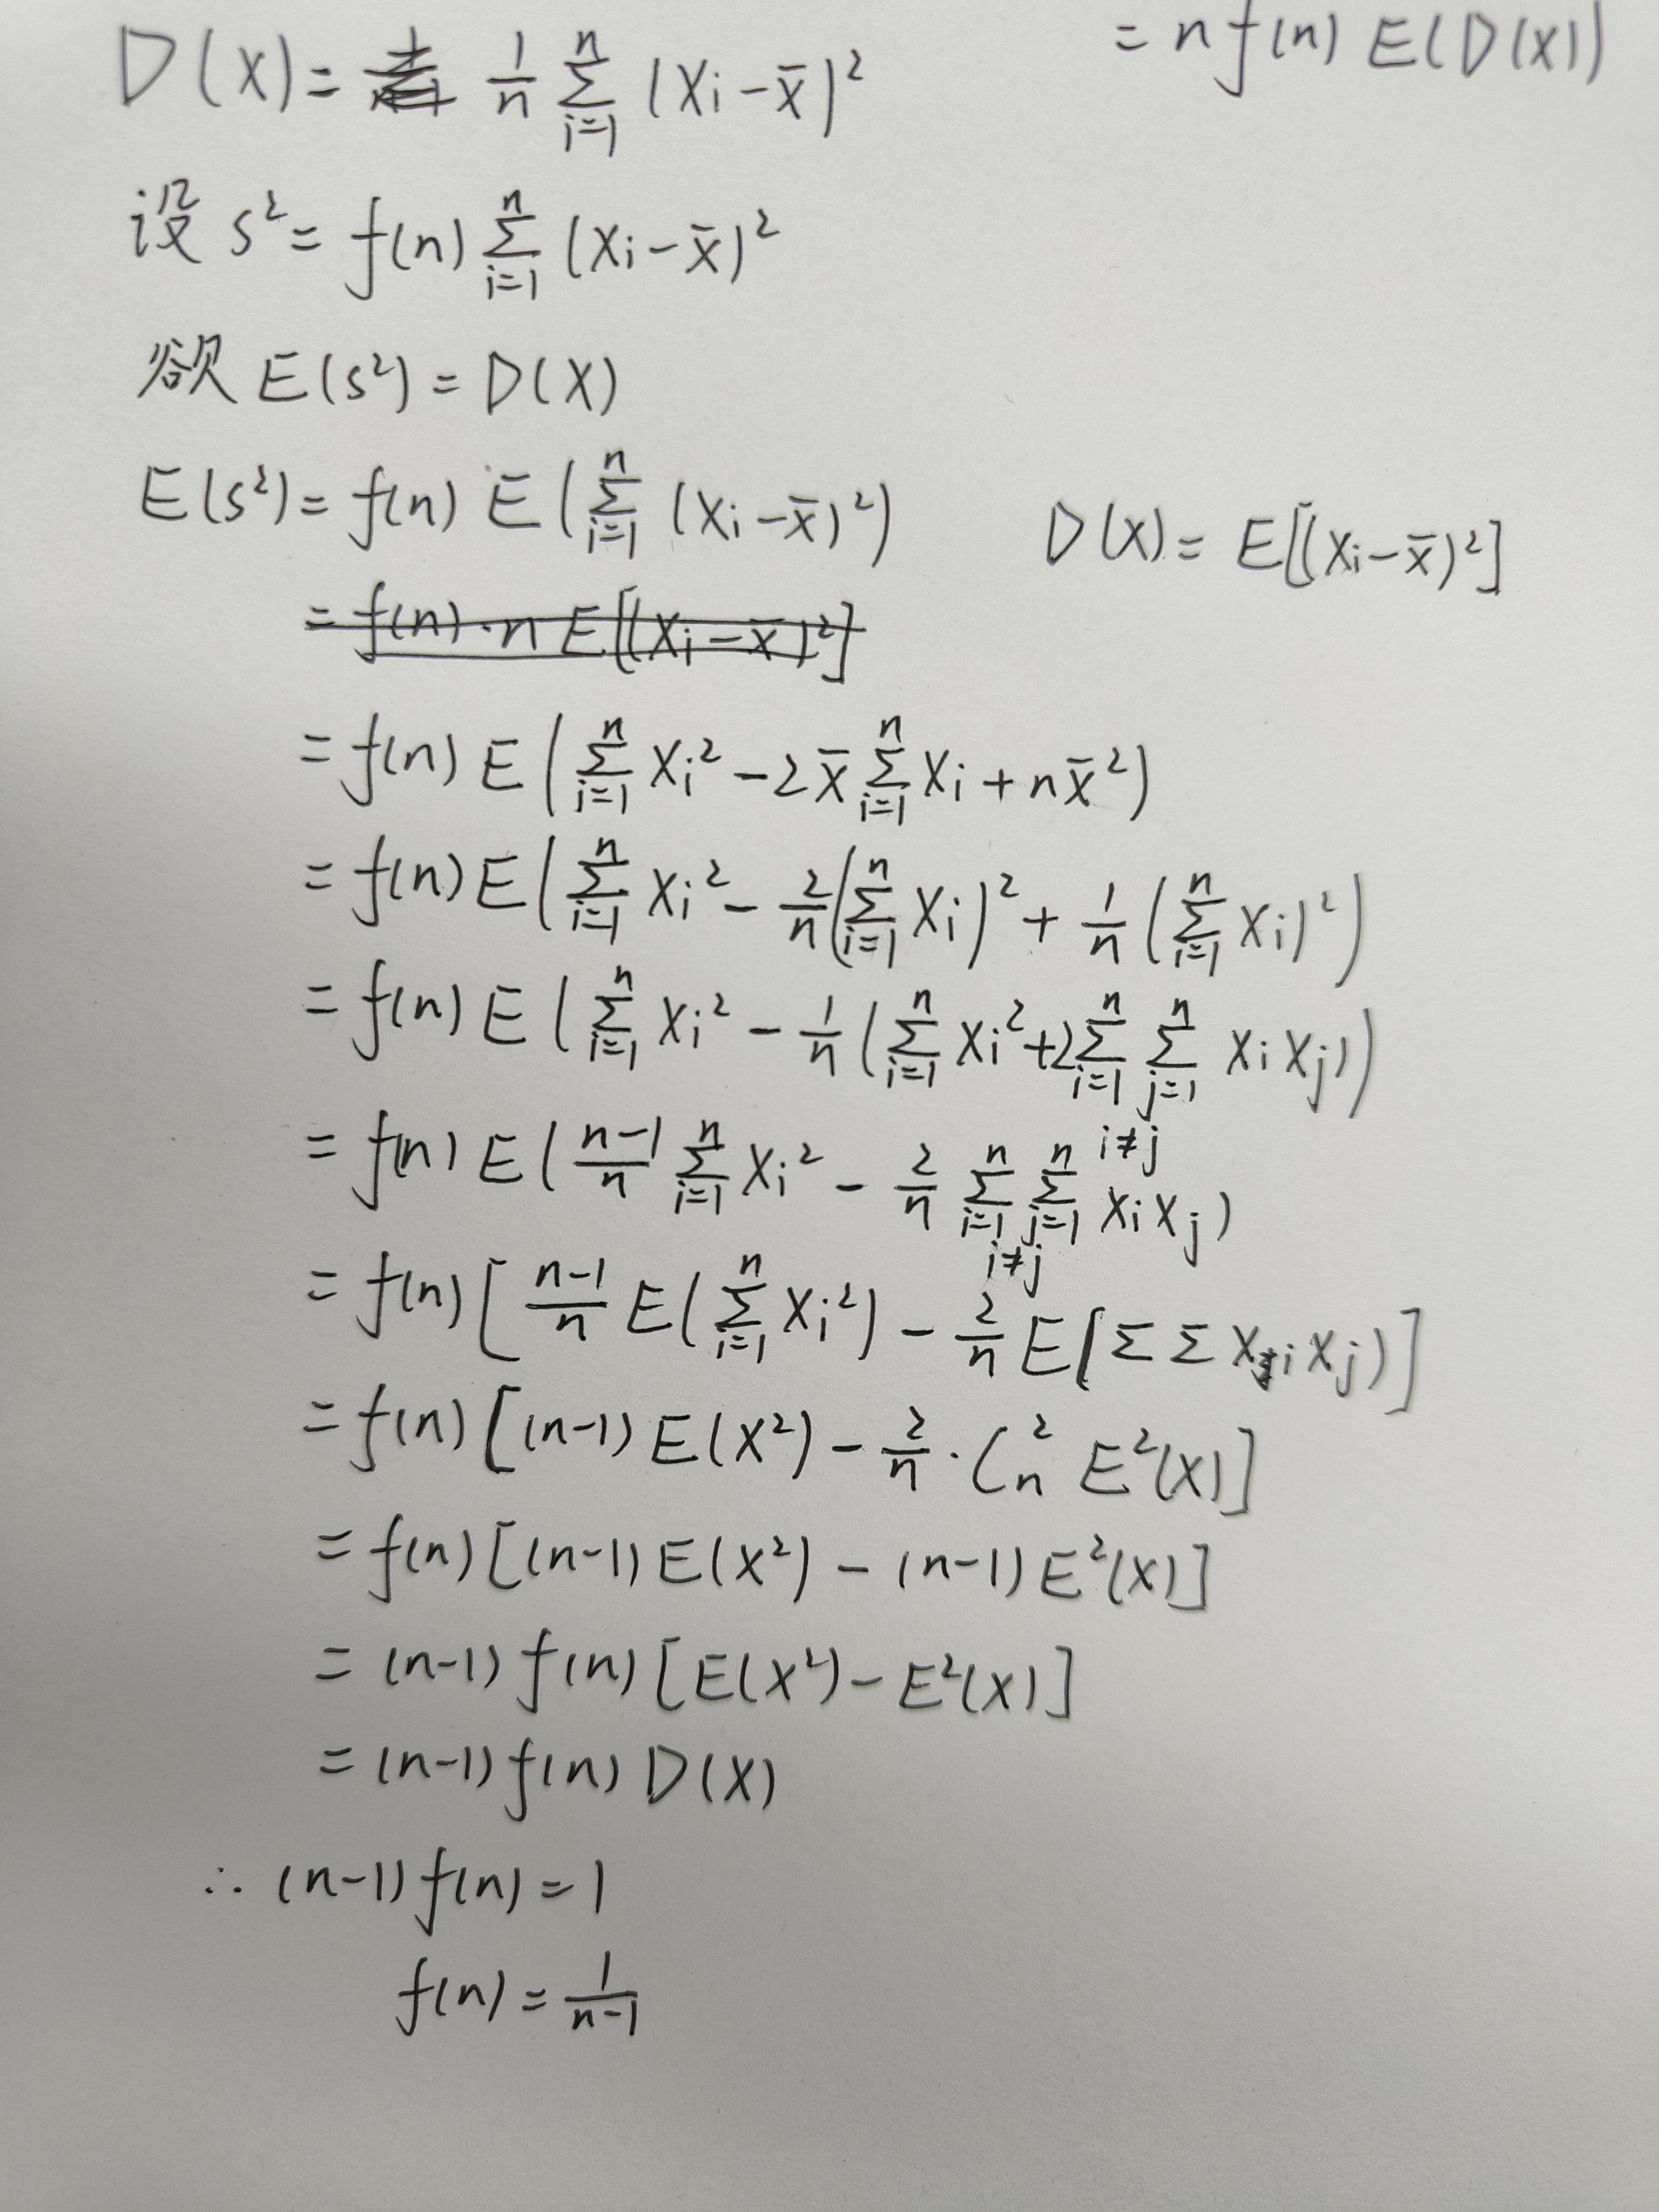 D(X) = 1/n Σ_{i=1}^{n} (Xi - x̄)²
= n f(n) E(D(X))
设 s² = f(n) Σ_{i=1}^{n} (Xi - x̄)²
欲 E(s²) = D(X)
E(s²) = f(n) E(Σ_{i=1}^{n} (Xi - x̄)²)
D(X) = E[(Xi - x̄)²]
= f(n)·n E[(Xi - x̄)²]
= f(n) E(Σ_{i=1}^{n} Xi² - 2x̄ Σ_{i=1}^{n} Xi + nx̄²)
= f(n) E(Σ_{i=1}^{n} Xi² - 2/n (Σ_{i=1}^{n} Xi)² + 1/n (Σ_{i=1}^{n} Xi)²)
= f(n) E(Σ_{i=1}^{n} Xi² - 1/n (Σ_{i=1}^{n} Xi² + 2Σ_{i=1}^{n} Σ_{j=1}^{n} Xi Xj))
i≠j
= f(n) E((n-1)/n Σ_{i=1}^{n} Xi² - 2/n Σ_{i=1}^{n} Σ_{j=1}^{n} Xi Xj)
i≠j
= f(n) [(n-1)/n E(Σ_{i=1}^{n} Xi²) - 2/n E(Σ Σ Xi Xj)]
= f(n) [(n-1) E(X²) - 2/n · C_n² E²(X)]
= f(n) [(n-1) E(X²) - (n-1) E²(X)]
= (n-1) f(n) [E(X²) - E²(X)]
= (n-1) f(n) D(X)
∴ (n-1) f(n) = 1
f(n) = 1/(n-1)